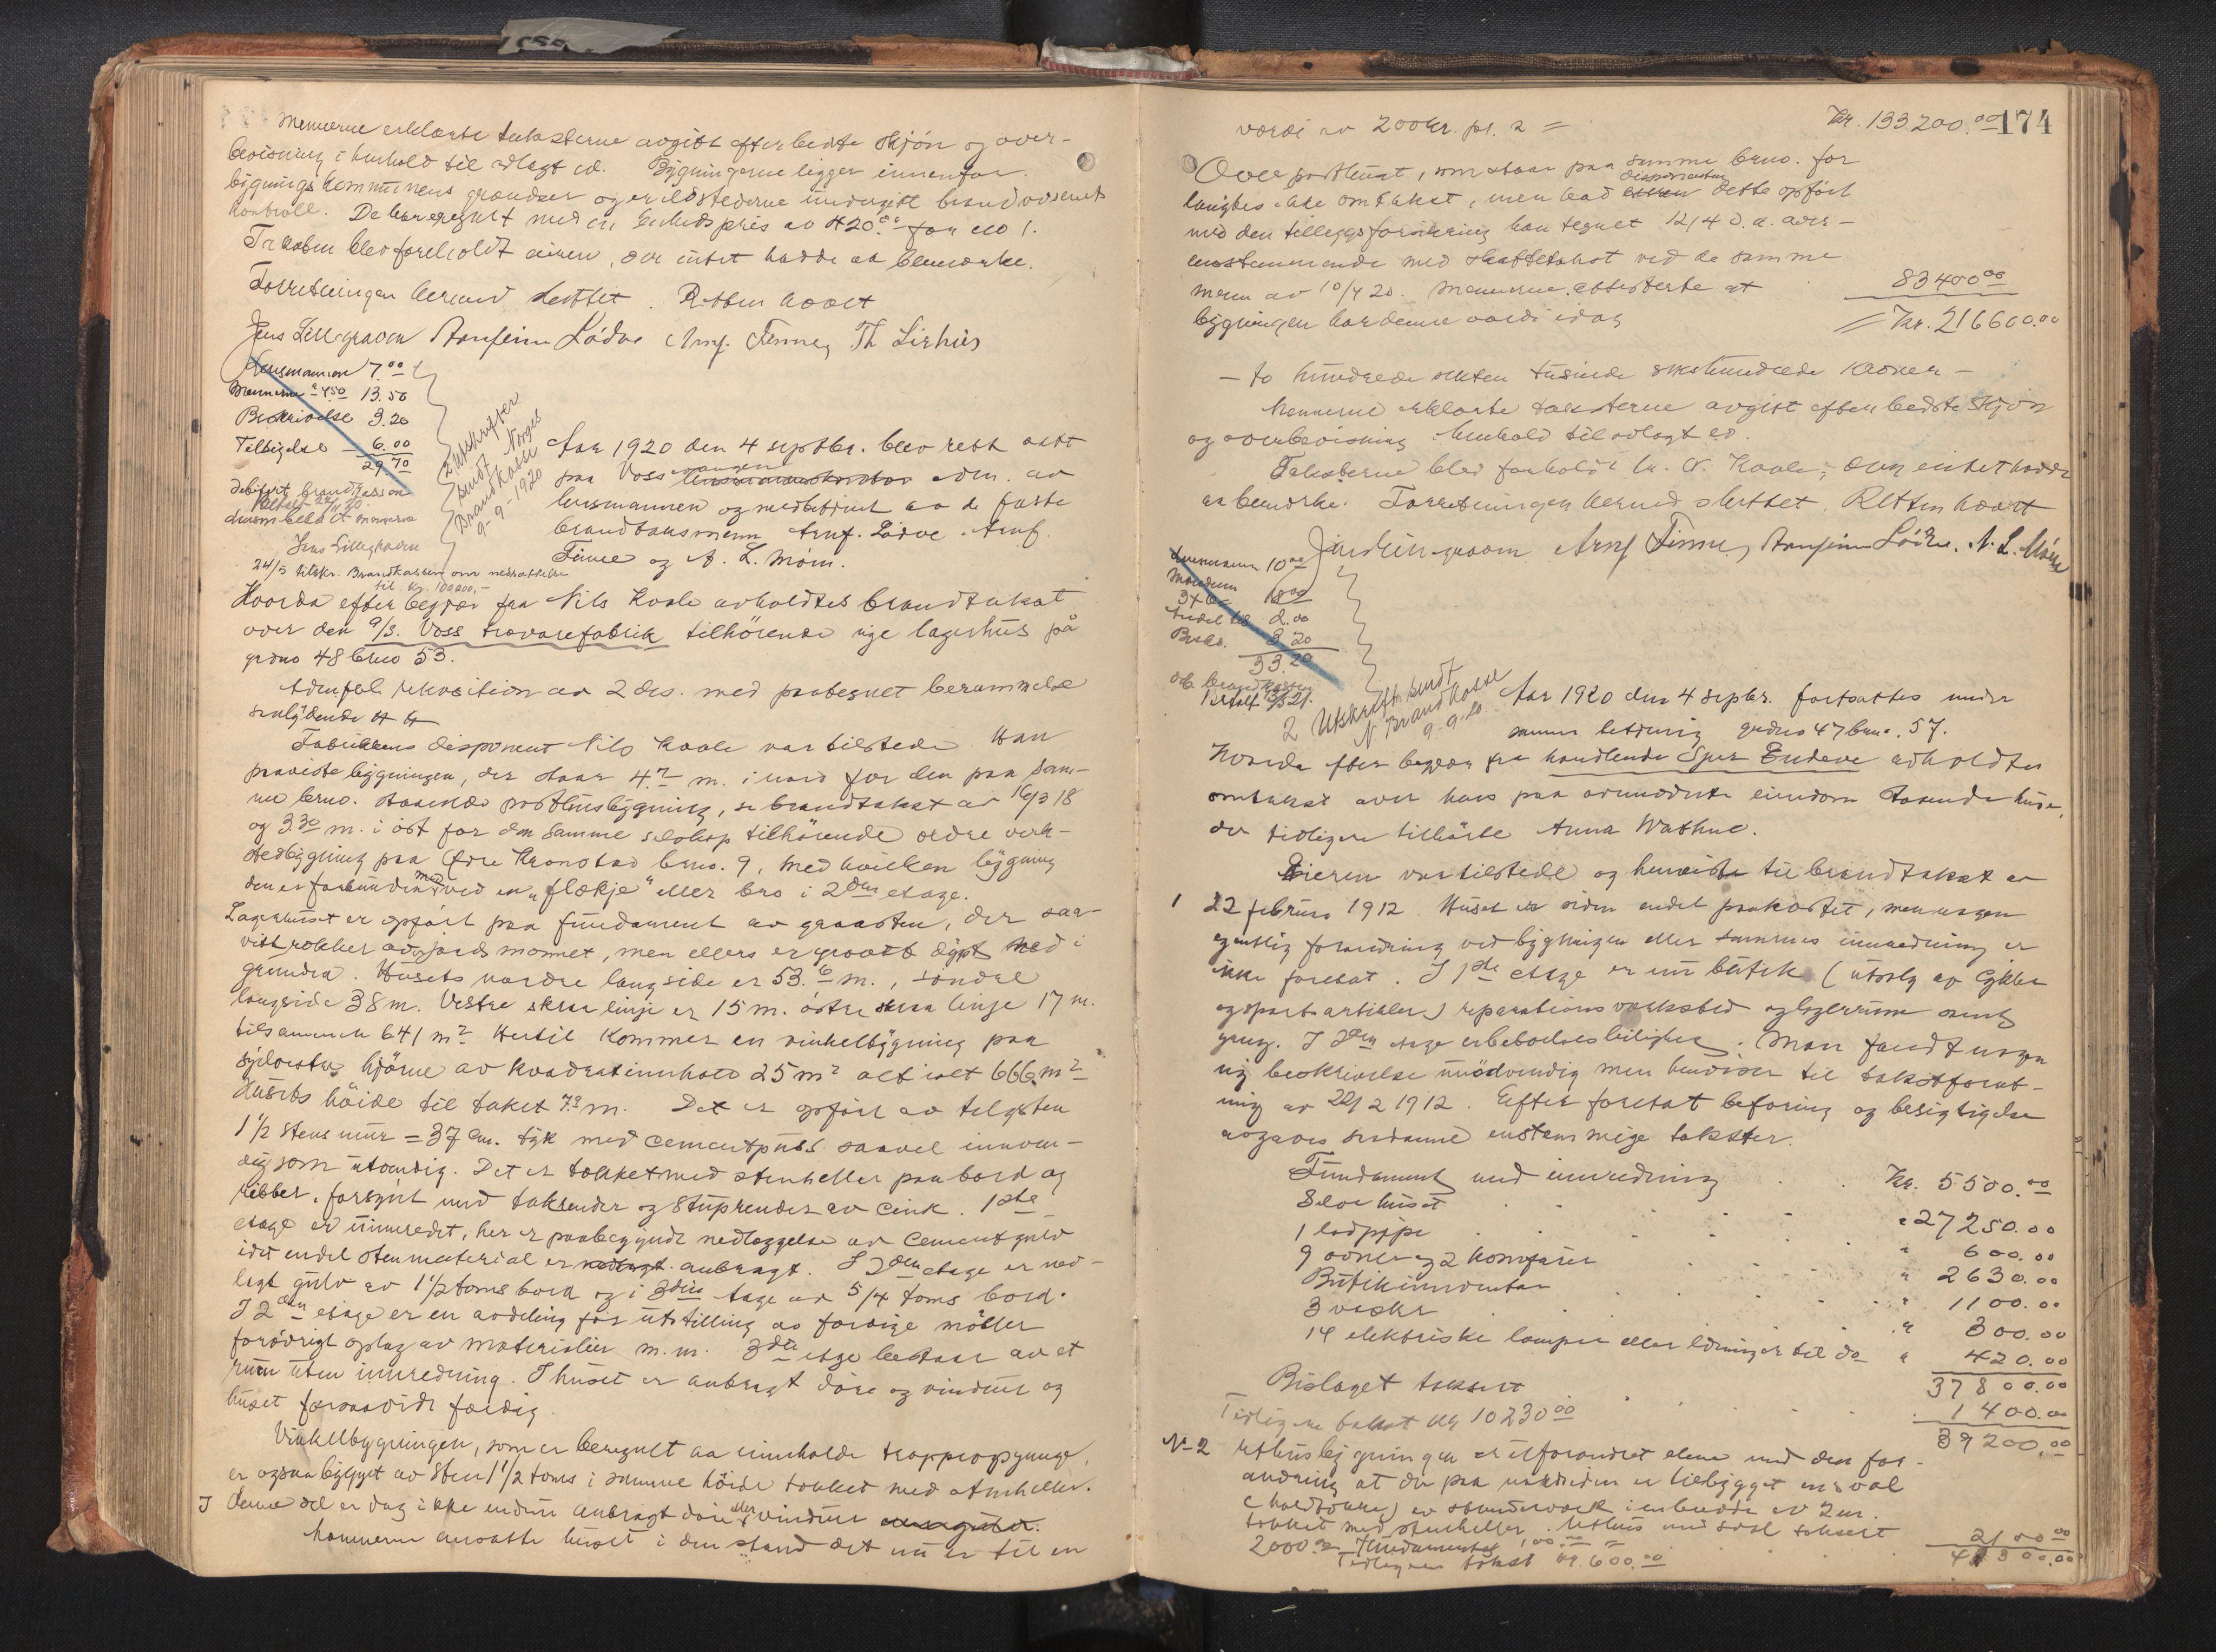 Mennerne erklærte taksterne avgitt efter bedste skjön og over-
bevisning i henhold til avlagt ed. Bygningerne ligger innenfor
bygningskommunens grændser og er ildstederne undergitt brandvæsenets
kontroll. De har regnet med en enhedspris av 420.00 for no 1.
Taksten blev foreholdt eieren, der intet hadde at bemerke.
Forretningen hermed sluttet. Retten hævet
Jens Lillegraven Arnfinn Lödve Arnf. Finne Th Lirhus
Lensmannen 7.00
Mennerne a 4.50 13.50
Beskrivelse 3.20
Tilsigelse 6.00
29.70
2 utskrifter
sendt Norges
Brandkasse
9-9-1920
debitert brandkassen
Jens Lillegraven
24/5 tilskr. Brandkassen om nedsættelse
til kr. 100000,-
Aar 1920 den 4 septbr. blev rett satt
paa Voss adm. av
lensmannen og medbetjent av de faste
brandtaksmenn Arnf. Lödve Arnf.
Finne og N. L. Möen.
Hvorda efter begjær fra Nils Koole avholdtes brandtakst
over den A/S. Voss trævarefabrik tilhörende nye lagerhus på
grdno 48 brno 53.
Fremla rekvisition av 2 ds. med paategnet berammelse
saalydende
Fabrikkens disponent Nils Koole var tilstede. Han
paaviste bygningen, der staar 4.7 m. i nord for den paa sam-
me brno. staaende posthusbygning, se brandtakst av 16/3 18
og 3.30 m. i öst for den samme selskap tilhörende ældre verk-
stedbygning paa Övre Kronstad brno. 9, med hvilken bygning
den er forbunden med ved en "flækje" eller bro i 2den etage.
Lagerhuset er opfört paa fundament av graasten, der saa-
vitt rekker over jordsmonnet, men ellers er gravet dypt ned i
grunden. Husets nordre langside er 53.6 m., söndre
langside 38 m. Vestre skraa linje er 15 m. östre skraa linje 17 m.
tilsammen 641 m2 Hertil kommer en vinkelbygning paa
sydvestre hjörne av kvadratinnhold 25 m2 alt ialt 666 m2
Husets höide til taket 7.9 m. Det er opfört av teglsten
1 1/2 stens mur = 37 cm. tyk med cementpuss saavel innven-
dig som utvendig. Det er tækket med stenheller paa bord og
ribber, forsynt med takrender og stuprender av cink. 1ste
etage er uinnredet, her er paabegyndt nedlæggelse av cementgulv
idet endel stenmaterial er anbragt. I 2den etage er ned-
lagt gulv av 1 1/2 toms bord og i 3die etage av 5/4 toms bord.
I 2den etage er en avdeling for utstilling av færdige möbler
forövrigt oplag av materialier m.m. 3die etage bestaar av et
rum uten innredning. I huset er anbragt döre og vinduer og
huset forsaavidt færdig.
Vinkelbygningen, som er beregnet aa innholde trappeopgange,
er ogsaa bygget av sten 1 1/2 toms i samme höide tækket med stenheller.
I denne del er dog ikke endnu anbragt döre eller vinduer
Mennerne ansatte huset i den stand det nu er til en
174
værdi av 200 kr. pr. m2 = Kr. 133200.00
Over posthuset, som staar paa samme brno. for
langtes ikke omtakst, men bad disponenten dette opfört
med den tilleggsforsikring han tegnet 12/4 d.a. over-
ensstemmende med skattetakst ved de samme
menn av 10/4 20. Mennerne attesterte at
bygningen har denne værdi idag 83400.00
= Kr. 216600.00
- to hundrede seksten tusinde sekshundrede kroner -
Mennerne erklærte taksterne avgitt efter bedste skjön
og overbevisning i henhold til avlagt ed.
Taksterne blev foreholdt hr. N. Koole, som intet hadde
at bemerke. Forretningen hermed sluttet. Retten hævet
Jens Lillegraven Arnf Finne, Arnfinn Lödve. N. L. Möen
Lensmannen 10.00
Mennerne
3 x 6 18.00
2.00
Beskr. 3.20
33.20
2 Utskrift sendt
N Brandkasse
9-9-20
Aar 1920 den 4 septbr. fortsattes under
samme betjening grdno 47 brno. 57.
Hvorda efter begjær fra handlende Sjur Endeve avholdtes
omtakst over hans paa ovennævnte eiendom staaende huse,
der tidligere tilhörte Anna Wathne.
Eieren var tilstede og henviste til brandtakst av
1 22 februar 1912. Huset er siden endel paakostet, men nogen
egentlig forandring ved bygningen eller sammes innredning er
ikke foretat. I 1ste etage er nu butik (utsalg av cykler
og sportsartikler) reparationsværksted og lagerrum samt
gang. I 2den etage er beboelsesleilighet. Man fandt nogen
ny beskrivelse unödvendig men henviser til takstforret-
ning av 22/2 1912. Efter foretat befaring og besigtigelse
avgaves saadanne enstemmige takster.
Fundament med innredning Kr. 5500.00
Selve huset " 27250.00
1 lodpipe " 600.00
9 ovner og 2 komfurer " 2630.00
Butikinventar " 1100.00
3 vasker " 300.00
14 elektriske lamper eller ledninger til do " 420.00
37800.00
Bislaget taksert 1400.00
Tidligere takst kr 10230.00 39200.00
No 2 Uthusbygningen er uforandret alene med den for-
andring at der paa nordsiden er tilbygget en sval
av stenderverk i en bredde av 2 m.
tækket med stenheller. Uthus med sval taksert
2000.00 Fundamentet 100.00 = 2100.00
Tidligere takst kr. 600.00 41300.00